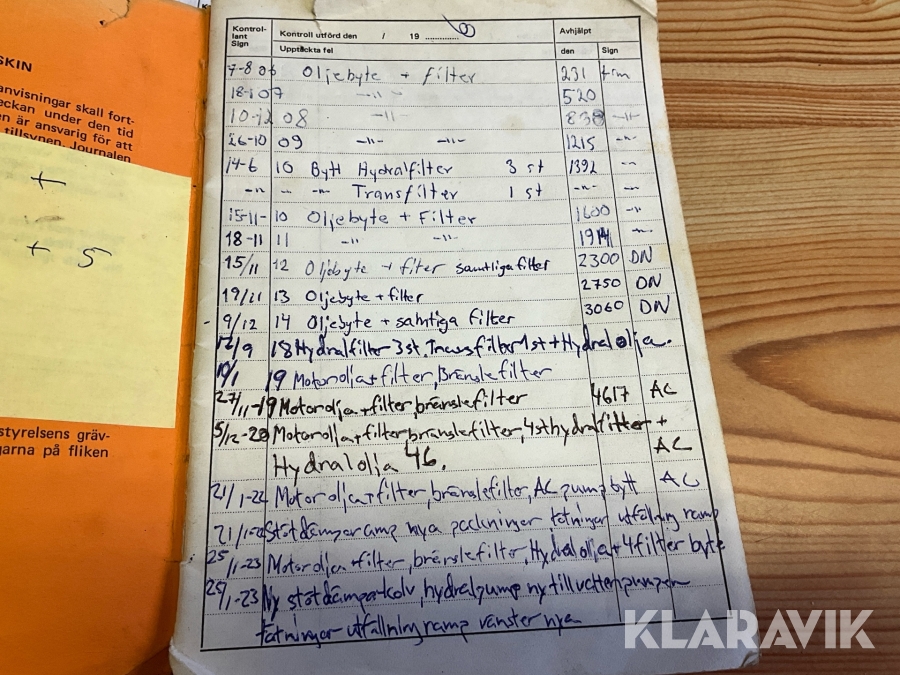 SKIN
anvisningar skall fort-
eckan under den tid
en är ansvarig för att
tillsynen. Journalen
+
+ 5
styrelsens gräv-
garna på fliken
Kontrol-
lant
Sign
Kontroll utförd den / 19
Upptäckta fel
Avhjälpt
den Sign
7-8 06 Oljebyte + filter 231
18-1 07 -"- 520
10-12 08 -"- 838 -"-
26-10 09 -"- -"- 1215 -"-
14-6 10 Bytt Hydralfilter 3 st 1392 -"-
-"- -"- -"- Transfilter 1 st -"- -"-
15-11- 10 Oljebyte + Filter 1600 -"-
18-11 11 -"- -"- 1914 -"-
15/11 12 Oljebyte + fiter samtliga filter 2300 DN
19/11 13 Oljebyte + filter 2750 DN
9/12 14 Oljebyte + samtiga filter 3060 DN
12/9 18 Hydralfilter 3 st. Transfilter 1st + Hydralolja.
10/1 19 Motorolja + filter, Bränslefilter
27/11-19 Motorolja + filter, bränslefilter 4617 AC
5/12-20 Motorolja + filter, bränslefilter, 4st hydralfilter +
Hydralolja 46. AC
21/1-22 Motorolja + filter, bränslefilter, AC pump bytt AC
21/1-22 Stötdämparamp nya packningar tätningar utfällning ramp
25/1-23 Motorolja + filter, bränslefilter, Hydralolja + 4 filter byte
25/1-23 Ny stötdämparkolv, hydralpump ny till vattenpumpen
tätningar utfällning ramp vänster nya
KLARAVIK